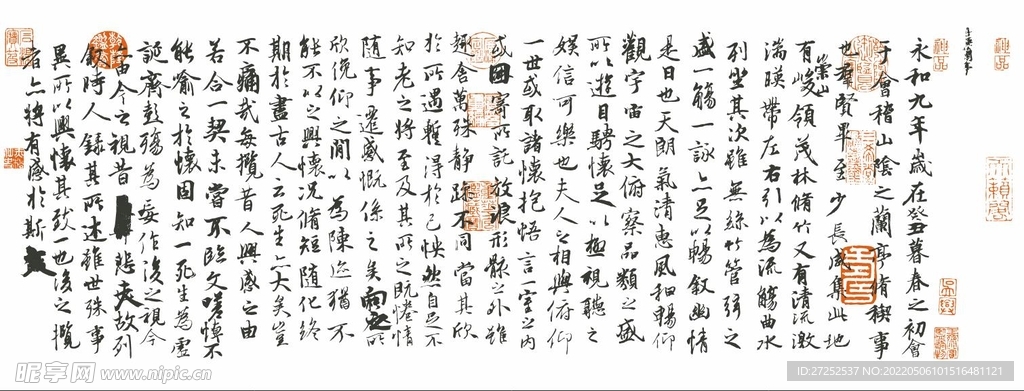 永和九年歲在癸丑暮春之初會
于會稽山陰之蘭亭脩稧事
也羣賢畢至少長咸集此地
有崇山峻領茂林脩竹又有清流激
湍暎帶左右引以為流觴曲水
列坐其次雖無絲竹管弦之
盛一觴一詠亦足以暢叙幽情
是日也天朗氣清惠風和暢仰
觀宇宙之大俯察品類之盛
所以遊目騁懷足以極視聽之
娛信可樂也夫人之相與俯仰
一世或取諸懷抱悟言一室之內
或因寄所託放浪形骸之外雖
趣舍萬殊静躁不同當其欣
於所遇蹔得於己怏然自足不
知老之將至及其所之既惓情
隨事遷感慨係之矣向之所
欣俛仰之閒以為陳迹猶不
能不以之興懷况脩短隨化終
期於盡古人云死生亦大矣豈
不痛哉每攬昔人興感之由
若合一契未嘗不臨文嗟悼不
能喻之於懷固知一死生為虛
誕齊彭殤為妄作後之視今
亦由今之視昔悲夫故列
叙時人録其所述雖世殊事
異所以興懷其致一也後之攬
者亦將有感於斯文
昵享网 www.nipic.cn
ID:27252537 NO:20220506101516481121